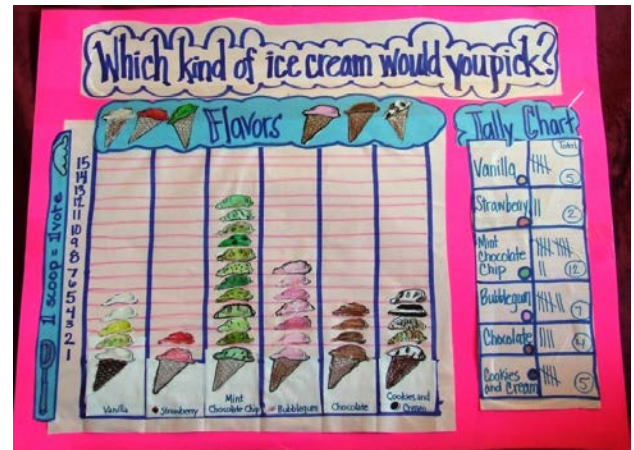 Which kind of ice cream would you pick?
Flavors
Tally Chart
1 scoop = 1 vote
15
14
13
12
11
10
9
8
7
6
5
4
3
2
1
Vanilla
Strawberry
Mint
Chocolate Chip
Bubblegum
Chocolate
Cookies and
Cream
Total
Vanilla
5
Strawberry
2
Mint
Chocolate
Chip
12
Bubblegum
7
Chocolate
4
Cookies
and Cream
5